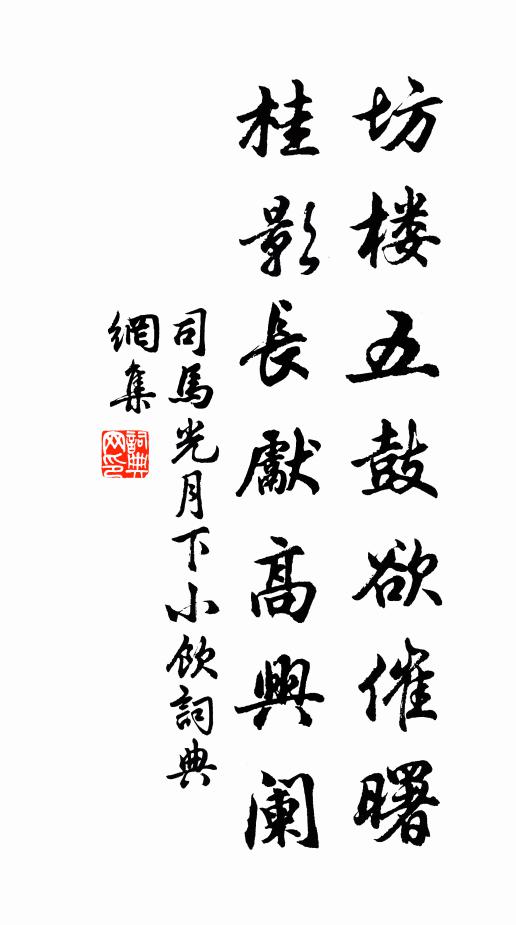 坊楼五鼓欲催曙
桂影長獻高興阑
司馬光月下小飲詞典
網集
詞典
网印